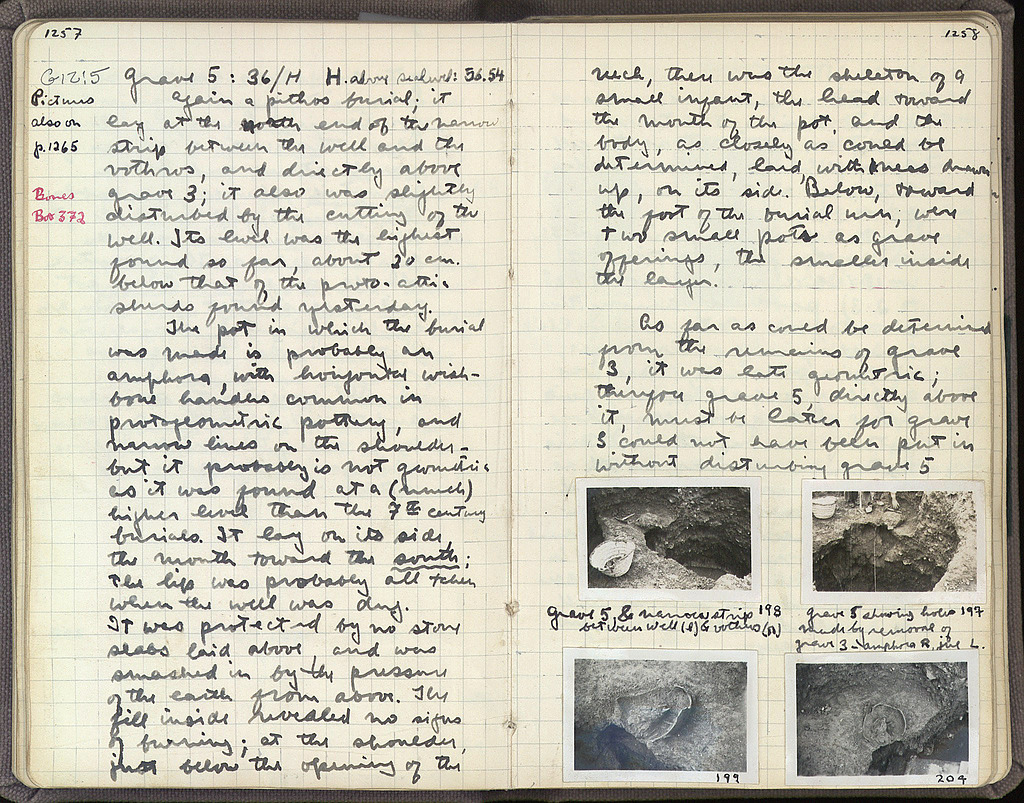 1257
G12:5 Grave 5: 36/H H. above sealevel: 56.54
Pictures
also on
p. 1265
Bones
Box 372
Again a pithos burial; it
lay at the north end of the narrow
strip between the well and the
vothros, and directly above
grave 3; it also was slightly
disturbed by the cutting of the
well. Its level was the highest
found so far, about 30 cm.
below that of the proto-attic
sherds found yesterday.
The pot in which the burial
was made is probably an
amphora, with horizontal wish-
bone handles common in
protogeometric pottery, and
narrow lines on the shoulder -
but it probably is not geometric
as it was found at a (much)
higher level than the 7th century
burials. It lay on its side,
the mouth toward the south;
the lip was probably all taken
when the well was dug.
It was protected by no stone
slabs laid above, and was
smashed in by the pressure
of the earth from above. The
fill inside revealed no signs
of burning; at the shoulder,
just below the opening of the
1258
neck, there was the skeleton of a
small infant, the head toward
the mouth of the pot, and the
body, as closely as could be
determined, laid, with knees drawn
up, on its side. Below, toward
the foot of the burial urn, were
two small pots as grave
offerings, the smaller inside
the larger.
As far as could be determined
from the remains of grave
3, it was late geometric;
therefore grave 5, directly above
it, must be later for grave
3 could not have been put in
without disturbing grave 5
grave 5, & narrow strip 198
between well (l) & vothros (r)
grave 5 showing hole 197
made by removal of
grave 3 - amphora R, jug L.
199
204